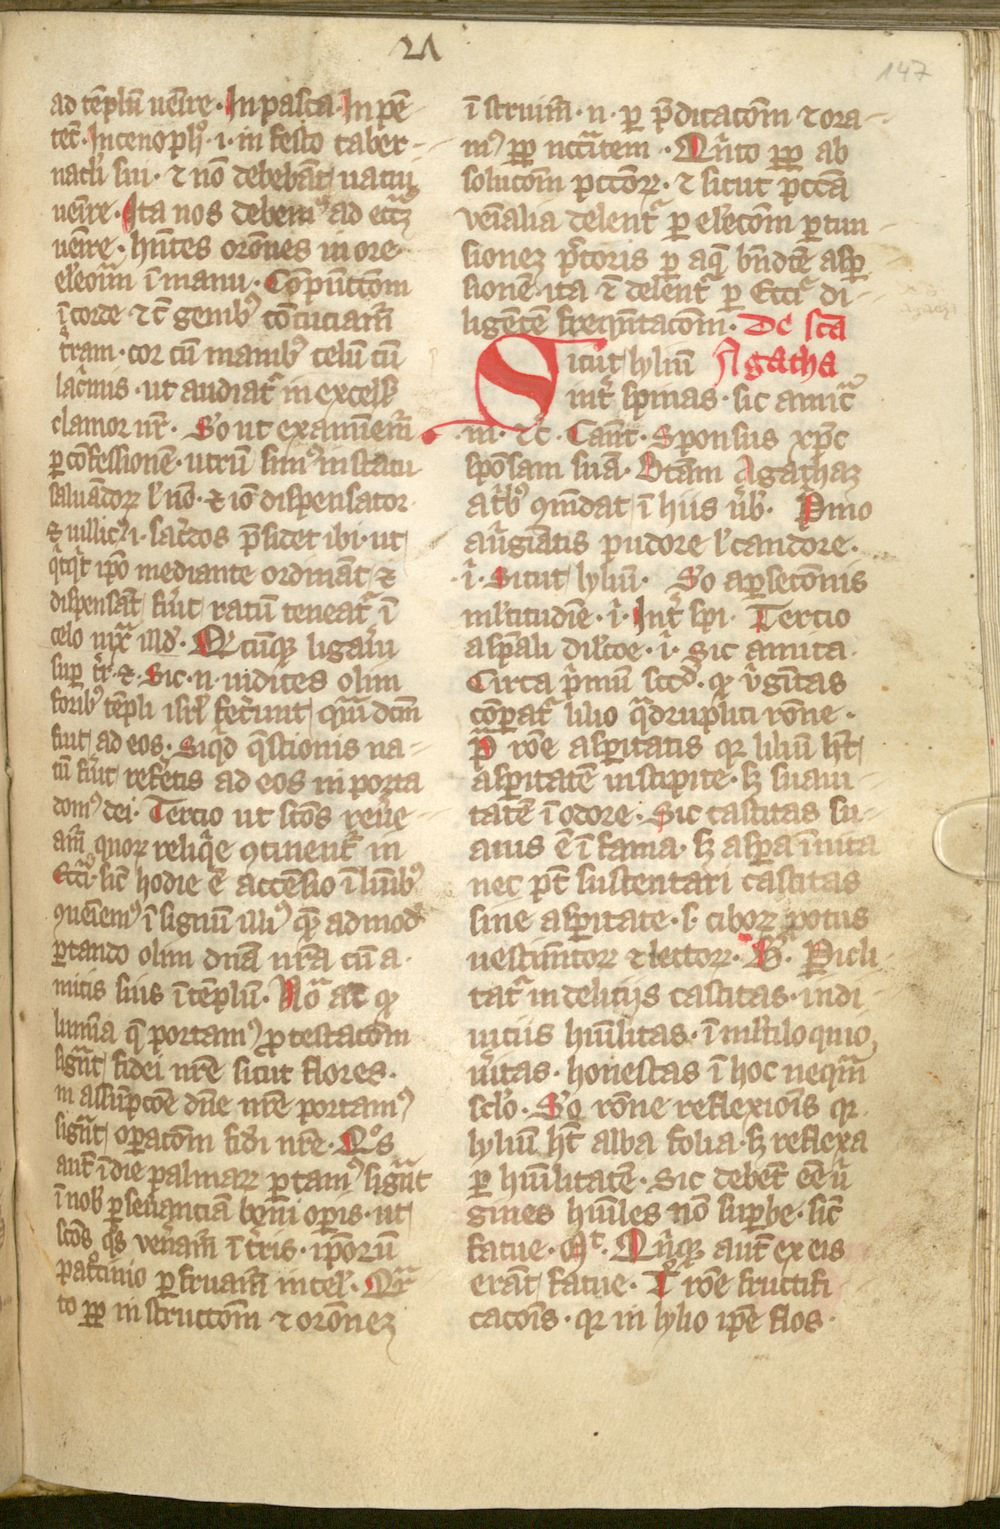 147
ad te̅plu̅ ue̅ire · In pasca · In pe̅
tec̅ · In cenoph᷒ · i · in festo taber-
nacl̅i sui · ⁊ no̅ debeba̅t uacui
ue̅ire · Ita nos debem᷒ ad ecc̅az
ue̅ire · hn̅tes oro̅nes in ore
el̅eoīm ī manu · Co̅pu̅cto̅m
ī corde ⁊ c̅ genib᷒ co̅cucia̅m᷒
t̅ram · cor cu̅ manib᷒ celu̅ cu̅
lac̅mis · ut audiat᷑ in excels᷒
clamor nr̅ · So ut examine̅m᷒
p̲ co̅fessione̅ · utru̅ sim᷒ in statu
saluandoꝝ l̅ no̅ · ⁊ io̅ dispensator
⁊ uillic᷒ · i · sac̅dos p̅sidet ibi · ut
q̅tq̅t ip̅o mediante ordina̅t ⁊
dispensa̅t fu̅it ratu̅ teneat᷑ ī
celo iux̅ illd̅ · Q̅cu̅q̅ ligau̅i
sup̲ t̅r · ⁊ · Sic · n · uidi̅tes olim
forib᷒ te̅pli isrl̅ fec̅unt / q̅u̅ dc̅m
fuit ad eos · Siqd̅ q̅stionis na-
tu̅ fu̅it / refe̅tis ad eos in porta
dom᷒ dei · Tercio ut sc̅os reu̅e
am̅ quoꝝ reliq̅e 9tinent᷑ in
Ecc̅a · sic̅ hodie e̅ acce̅sio ī lu̅ib᷒
9uenie̅m᷒ ī signu̅ illi᷒ que̅ admod᷒
p̲tando olim dn̅a nr̅a cu̅ a ·
micis suis ī te̅plu̅ · No̅ at q̲
lumi̅a q̅ portam᷒ p̲testaco̅m
sign̅t fidei nr̅e sicut flores ·
in assu̅pco̅e dn̅e nr̅e portam᷒
sign̅t op̲aco̅m fid̅i nr̅e · Q᷒s
aut̅ ī die palmaꝝ p̲tam᷒ sign̅t
ī nob̅ p̲seueranciā boni̅ op̲is · ut
sc̅os q᷒s ven̅am᷒ ī t̅ris · ip̅oru̅
pat᷒cinio p̲fruam᷒ in cel᷒ · Qr̅
to pp̲ instructo̅m ⁊ oro̅nez
ī struim᷒ · n · p̲ p̅dicaco̅m ⁊ ora-
m᷒ pp̲ nc̅citatem · Qu̅to pp̲ ab
soluto̅m pcc̅oꝝ · ⁊ sicut pcc̅a
ve̅ialia delent᷑ p̲ el̅eco̅m p̲tun
sionez p̅ctoris p̲ aq̅ bn̅dc̅e asp̲
sione̅ ita ⁊ delent᷑ p̲ Ecc̅i di-
lige̅te̅ freq̅ntaco̅m · De sc̅a
Sicut lyliu̅ Agatha
int᷑ spinas · sic amic̅
m · ⁊c̅ · Cant̅ · Sponsus xp̅c
spo̅sam sua̅ · Bt̅am Agathaz
at̅b᷒ 9me̅dat ī hiis u̅b᷒ · P̅mo
au̅giatis pudore l̅ candore ·
·i̅ · Sicut lyliu̅ · So a p̲secto̅nis
ml̅titudi̅e · i̅ · Int᷑ spi · Tercio
a sp̅ali dil̅coe · i̅ · Sic amica ·
Circa p̅mu̅ scd̅ · q̲ v̅gi̅itas
co̅p̲at᷑ lilio q̅drup̲lici ro̅ne ·
P̅ ro̅e asp̲itatis qꝛ liliu̅ h̅t
asp̲itate̅ in stipite · sꝫ suaui-
tate̅ ī odore · Sic castitas su-
auis e̅ ī fama · sꝫ asp̲a ī uita
nec p̅t sustentari castitas
sine asp̲itate · s · ciboꝝ potus
vestime̅toꝝ ⁊ lectoꝝ · B᷒ · Picli
tat᷑ in delicijs castitas · in di
uiciis hu̅ilitas · ī ml̅tiloquio
u̅itas · honestas ī hoc neq̅m
scl̅o · So ro̅ne reflexio̅is qꝛ
lyliu̅ h̅t alba folia · sꝫ reflexa
p̲ hu̅ilitate̅ · Sic debe̅t ee̅ u̅
gines hu̅iles no̅ sup̲be · sic̅
fatue · Mt̅ · Qu̅qꝫ aut̅ ex eis
era̅t fatue · T᷒ ro̅e fructifi
caco̅is · qꝛ in lylio ip̅e flos ·